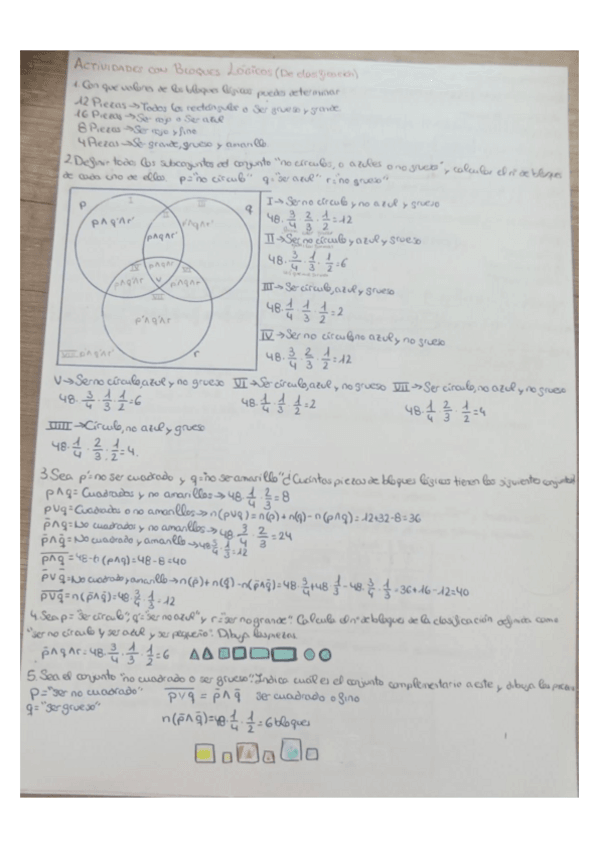 ACTIVIDADES CON BLOQUES LÓGICOS (De clasificación)
1. Con que valores de los bloques lógicos puedes determinar
12 Piezas → Todos los rectángulos o Ser grueso y grande.
16 Piezas → Ser rojo o Ser azul
8 Piezas → Ser rojo y fino
4 Piezas → Se grande, grueso y amarillo.
2. Definir todos los subconjuntos del conjunto "no círculos, o azules o no grueso" y calcular el nº de bloques
de cada uno de ellos. p="no círculo" q="ser azul" r="no grueso"
p
I
II
III
q
p∧q'∧r'
p∧q∧r'
p'∧q∧r'
IV
p∧q∧r
V
VI
VII
p'∧q'∧r
r
p'∧q'∧r'
I → Ser no círculo y no azul y grueso
48 · 3/4 · 2/3 · 1/2 = 12
II → Ser no círculo y azul y grueso
48 · 3/4 · 1/3 · 1/2 = 6
III → Ser círculo, azul y grueso
48 · 1/4 · 1/3 · 1/2 = 2
IV → Ser no círculo, no azul y no grueso
48 · 3/4 · 2/3 · 1/2 = 12
V → Ser no círculo, azul y no grueso VI → Ser círculo, azul y no grueso VII → Ser círculo, no azul, y no grueso
48 · 3/4 · 1/3 · 1/2 = 6 48 · 1/4 · 1/3 · 1/2 = 2 48 · 1/4 · 2/3 · 1/2 = 4
VIII → Círculo, no azul y grueso
48 · 1/4 · 2/3 · 1/2 = 4.
3. Sea p="no ser cuadrado y q="no ser amarillo" ¿Cuántas piezas de bloques lógicos tienen los siguientes conjuntos?
p∧q = Cuadrados y no amarillos → 48 · 1/4 · 2/3 = 8
p∨q = Cuadrados o no amarillos → n(p∨q) = n(p) + n(q) - n(p∧q) = 12+32-8 = 36
p̄∧q = No cuadrados y no amarillos → 48 · 3/4 · 2/3 = 24
p̄∧q̄ = No cuadrado y amarillos → 48 · 3/4 · 1/3 = 12
p∧q = 48 - n(p∧q) = 48-8 = 40
p̄∨q̄ = No cuadrado y amarillo → n(p̄) + n(q̄) - n(p̄∧q̄) = 48 · 3/4 + 48 · 1/3 - 48 · 3/4 · 1/3 = 36+16-12 = 40
p∨q = n(p̄∧q̄) = 48 · 3/4 · 1/3 = 12
4. Sea p="Ser círculo", q="ser no azul" y r="ser no grande". Calcula el nº de bloques de la clasificación definida como
"ser no círculo y ser azul y ser pequeño". Dibuja las piezas.
p̄∧q̄∧r = 48 · 3/4 · 1/3 · 1/2 = 6
5. Sea el conjunto "no cuadrado o ser grueso". Indica cual es el conjunto complementario a este y dibuja las piezas
p="ser no cuadrado" p∨q = p̄∧q̄ ser cuadrado o fino
q="ser grueso"
n(p̄∧q̄) = 48 · 1/4 · 1/2 = 6 bloques